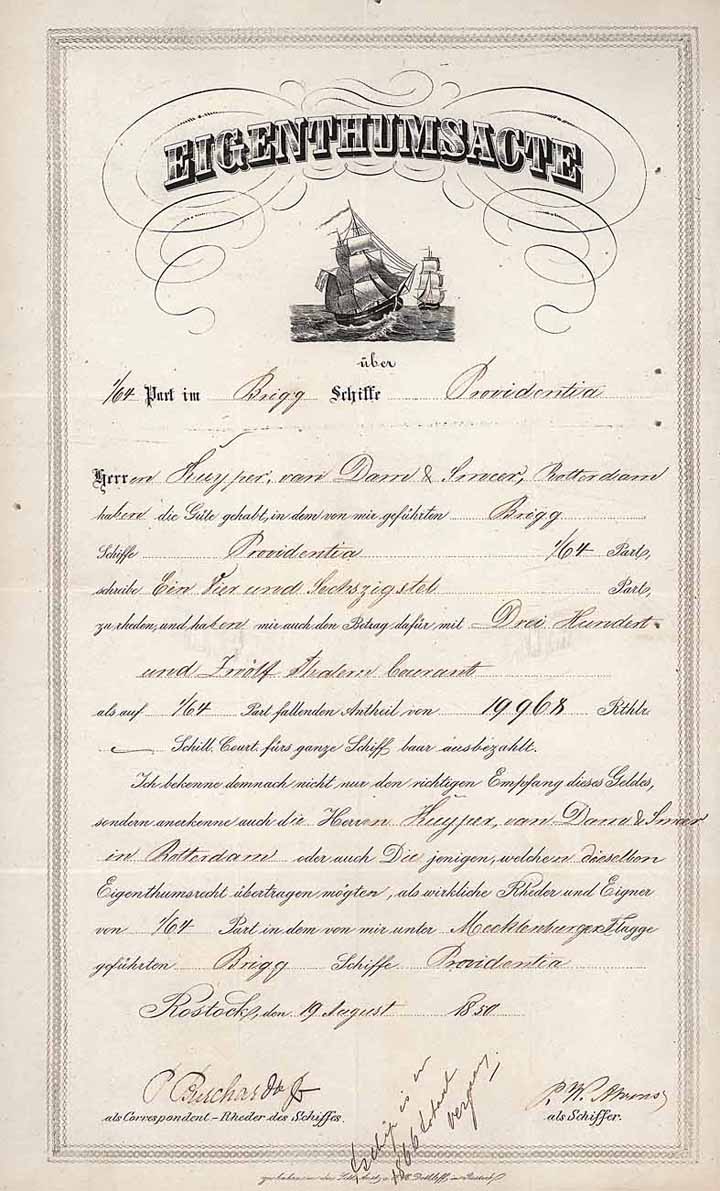 EIGENTHUMSACTE
über
1/64 Part im Brigg Schiffe Providentia
Herren Kuyper, van Dam & Smeer, Rotterdam
haben die Güte gehabt, in dem von mir geführten Brigg
Schiffe Providentia 1/64 Part,
schreibe Ein Vier und Sechszigstel Part,
zu rheden, und haben mir auch den Betrag dafür mit Drei Hundert
und Zwölf Thalern Courant
als auf 1/64 Part fallenden Antheil von 19968 Rthlr.
Schill. Court. fürs ganze Schiff baar ausbezahlt.
Ich bekenne demnach nicht nur den richtigen Empfang dieses Geldes,
sondern anerkenne auch die Herren Kuyper, van Dam & Smeer
in Rotterdam oder auch Die jenigen, welchen dieselben
Eigenthumsrecht übertragen mögten, als wirkliche Rheder und Eigner
von 1/64 Part in dem von mir unter Mecklenburger Flagge
geführten Brigg Schiffe Providentia
Rostock, den 19 August 1850
P. Burchard
als Correspondent-Rheder des Schiffes.
P. W. Ahrens
als Schiffer.
schip is in
1866
vergaan
zu haben in der in Rostock